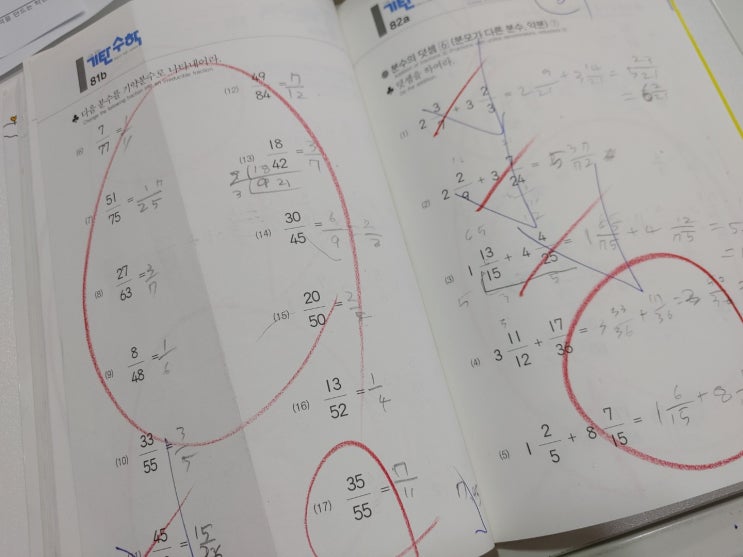 기탄수학
81b
♣ 다음 분수를 기약분수로 나타내어라.
Change the following fraction into an irreducible fraction.
(6) 7/77 =
(7) 51/75 = 17/25
(8) 27/63 = 3/7
(9) 8/48 = 1/6
(10) 33/55 = 3/5
45 = 15
(12) 49/84 = 7/12
(13) 18/42 = 3/7
(14) 30/45 = 6/9 = 2/3
(15) 20/50 = 2
(16) 13/52 = 1/4
(17) 35/55 = 7/11
기탄
82a
● 분수의 덧셈 6 (분모가 다른 분수, 약분) ⑦
♣ 덧셈을 하여라.
(1) 2 3/7 + 3 2/3 = 2 9/21 + 3 14/21 = 5 23/21
= 6 2/21
(2) 2 2/9 + 3 7/24 = 5 37/72
(3) 1 13/15 + 4 4/25 = 1 65/75 + 4 12/75 = 5
(4) 3 11/12 + 17/36 = 3 33/36 + 17/36 = 3
(5) 1 2/5 + 8 7/15 = 1 6/15 + 8